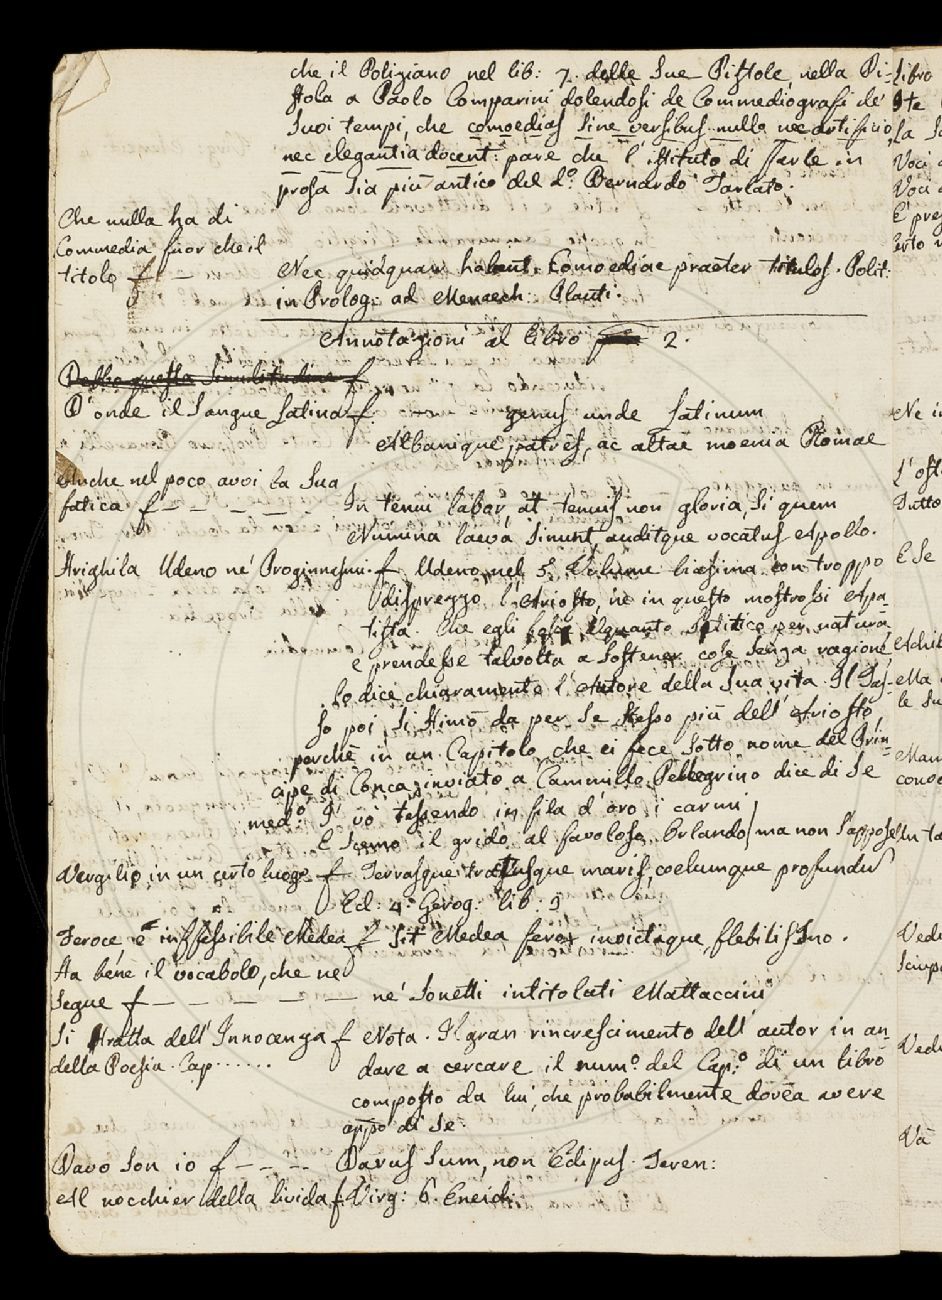 che il Poliziano nel lib: 7. delle Sue Pistole, nella Pi-
stola a Paolo Comparini dolendosi de Commediografi de'
Suoi tempi, che comoedias sine versibus nullo nec artificio,
nec elegantia docent: pare che l'istituto di farle in
prosa Sia più antico del d.º Bernardo Tarlato.
Che nulla ha di
Commedia fuor che il
titolo f — Nec quidquam habent Comoediae praeter titulos. Polit:
in Prolog: ad Menaech: Plauti:
Annotazioni al libro 2.
Debbo questa Similitudine f
D'onde il Sangue Latino f genus unde Latinum
Albanique patres, ac altae moenia Romae
Anche nel poco avoi la Sua
fatica f - - - - - In tenui labor, at tenuis non gloria, Si quem
Numina laeva Sinunt, auditque vocatus Apollo.
Arighila Udeno ne' Proginnasmi. f Udeno nel 5.º Volume biasima con troppo
dispreggo l'Ariosto, ne in questo mostrossi Apa-
tista. Che egli alquanto Stitico per natura
e prendesse talvolta a Sostener cose Senza ragione
lo dice chiaramente l'Autore della Sua vita. Il Tas-
so poi Si Stimò da per Se Stesso più dell'Ariosto,
perchè in un Capitolo, che ei fece Sotto nome del Prin-
cipe di Conca, inviato a Cammillo Pellegrino dice di Se
med.º I' vò tessendo in fila d'oro i carmi
E Scemo il grido al favoloso Orlando ma non s'appose
Vergilio in un certo luogo f Terrasque tractusque maris, coelumque profundum
Ecl: 4.º Georg: lib: 3
Feroce, e inflessibile Medea f Sit Medea ferox invictaque, flebilis Ino.
Ha bene il vocabolo, che ne
Segue f — — — — — ne' Sonetti intitolati Mattaccini
Si tratta dell'Innocenza f Nota. Il gran rincrescimento dell'autor in an-
della Poesia Cap...... dare a cercare il num.º del Cap.º di un libro
composto da lui, che probabilmente dovea avere
appo di Se.
Davo Son io f - - - - Davus Sum, non Edipus. Teren:
Al nocchier della livida f. Virg: 6. Eneid: